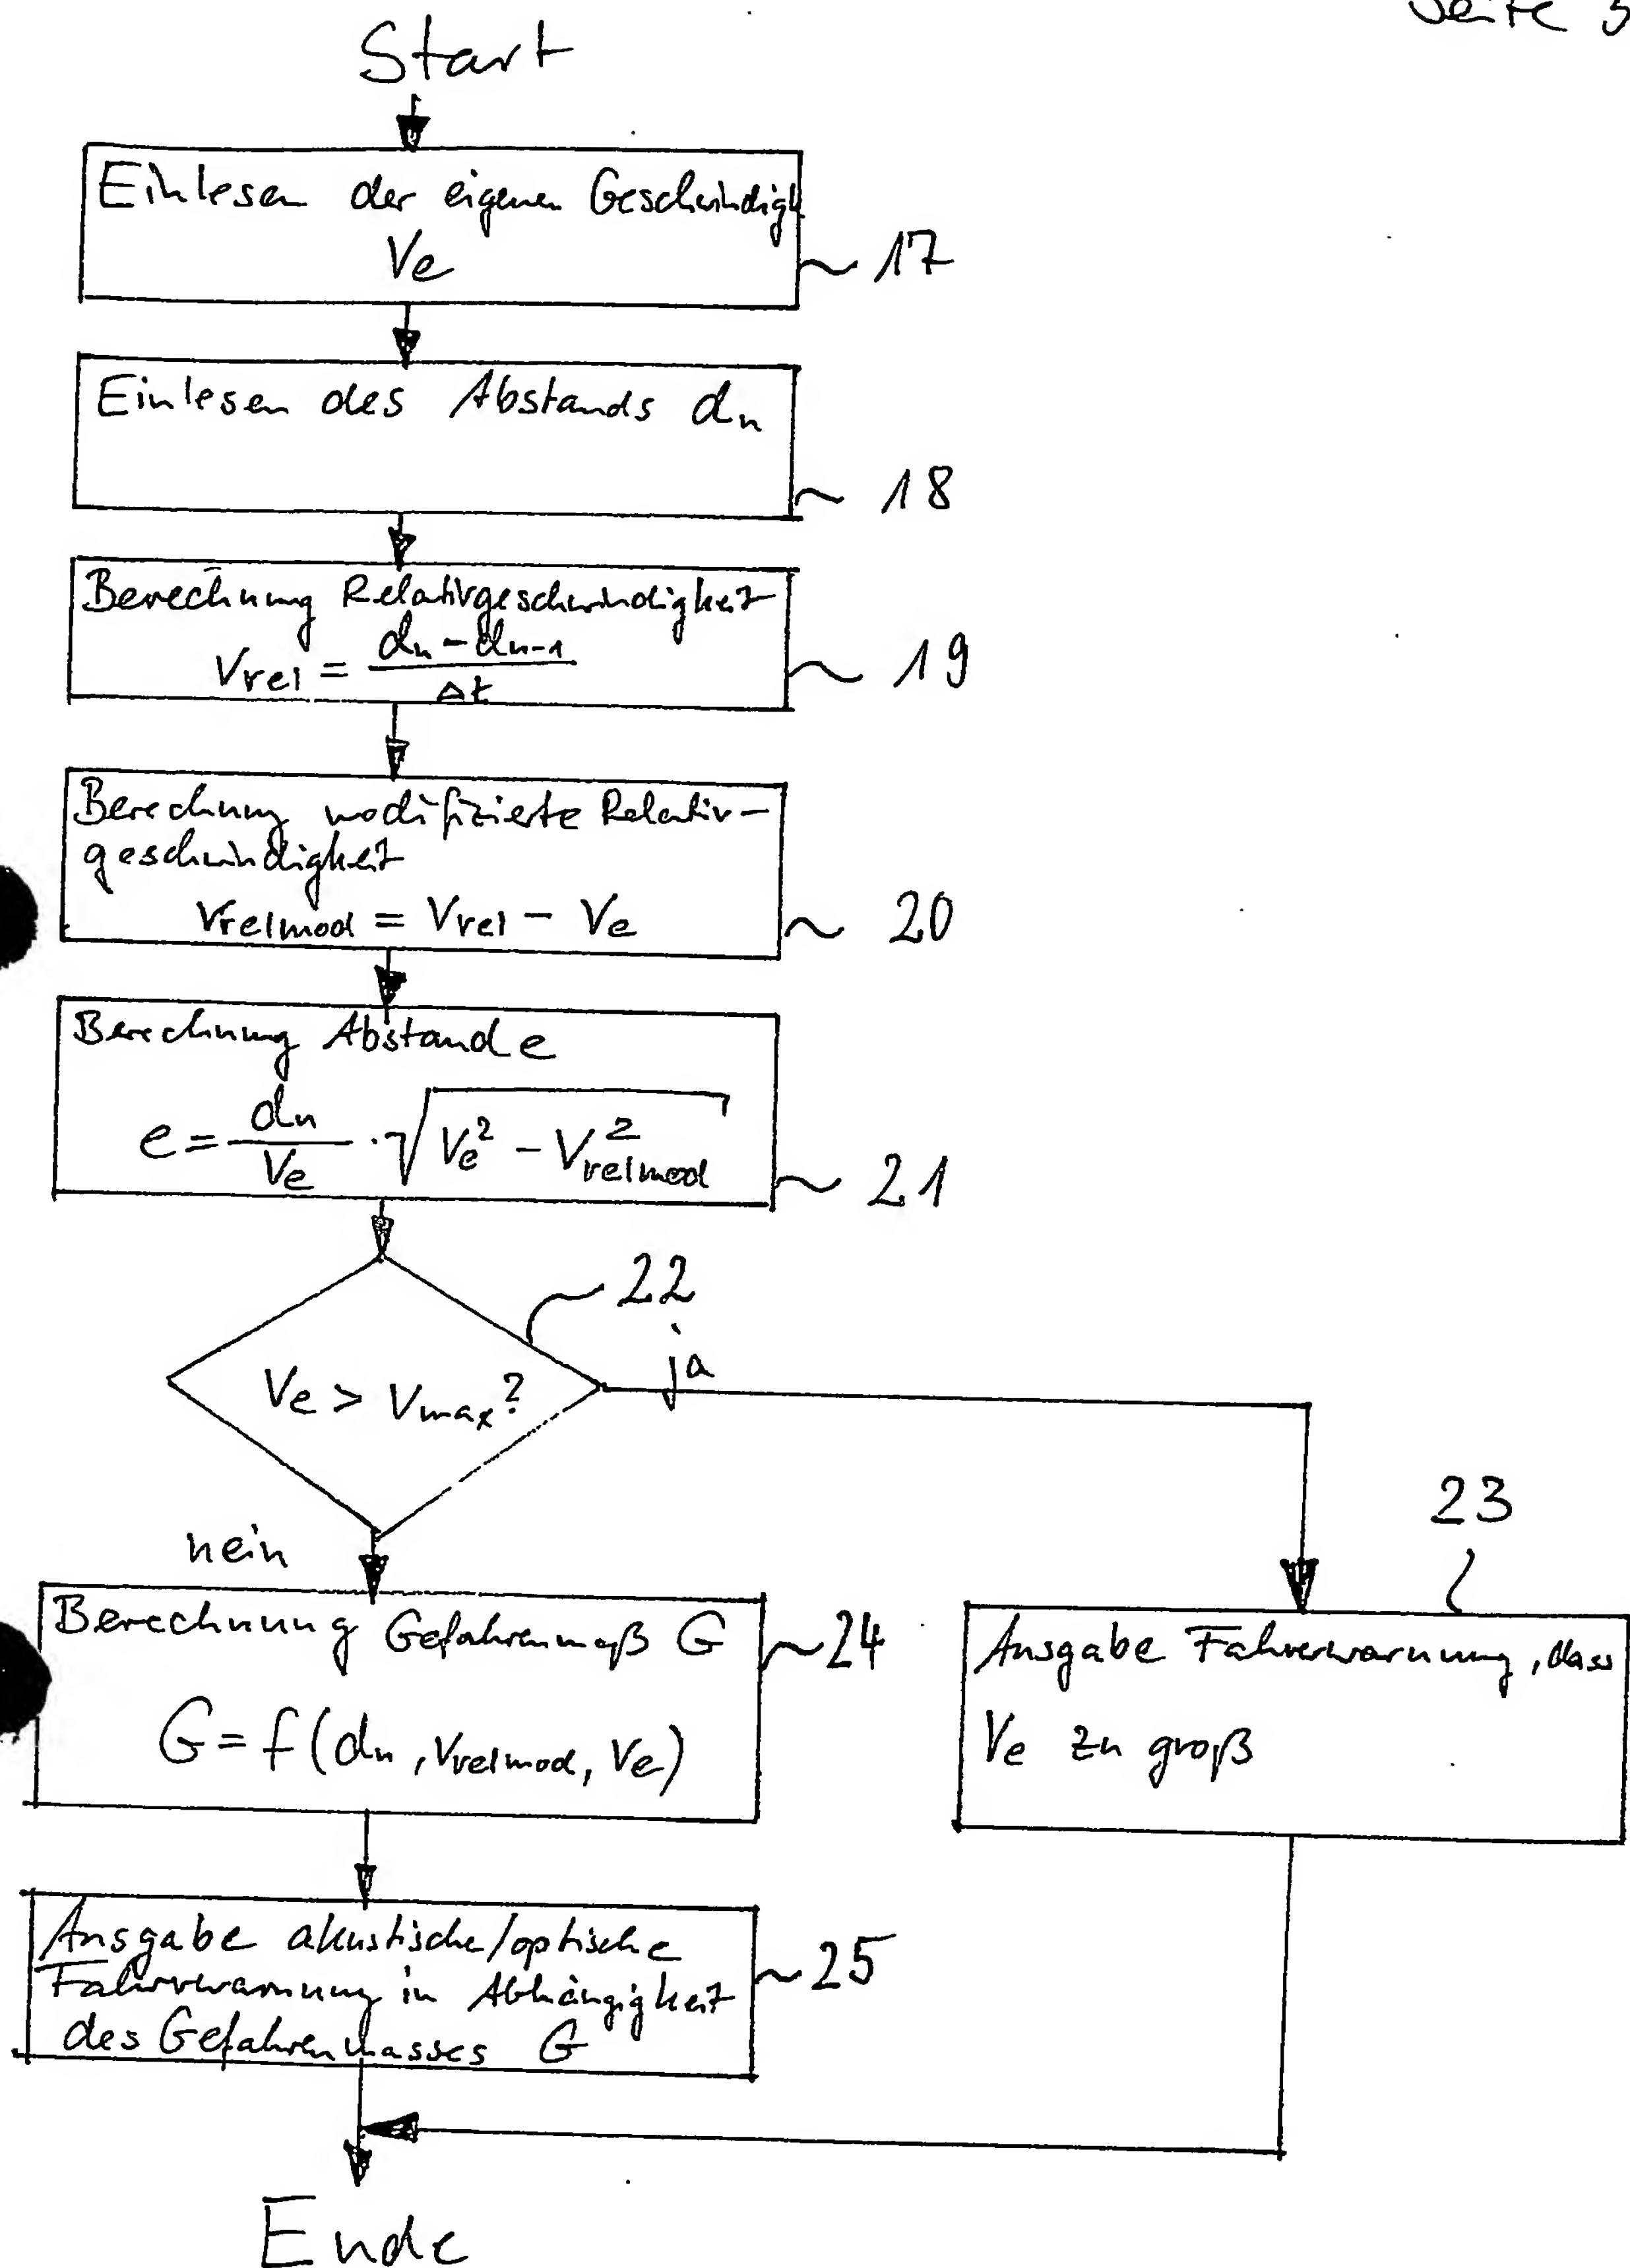 Seite
Start
Einlesen der eigenen Geschwindigk
Ve
17
Einlesen des Abstands dn
18
Berechnung Relativgeschwindigkeit
Vrel = (dn - dn-1) / Δt
19
Berechnung modifizierte Relativ-
geschwindigkeit
Vrelmod = Vrel - Ve
20
Berechnung Abstand e
e = dn / Ve · √(Ve² - Vrelmod²)
21
22
Ve > Vmax?
ja
nein
23
Berechnung Gefahrenmaß G
24
G = f(dn, Vrelmod, Ve)
Ausgabe Fahrerwarnung, dass
Ve zu groß
Ausgabe akustische/optische
Fahrerwarnung in Abhängigkeit
des Gefahrenmasses G
25
Ende